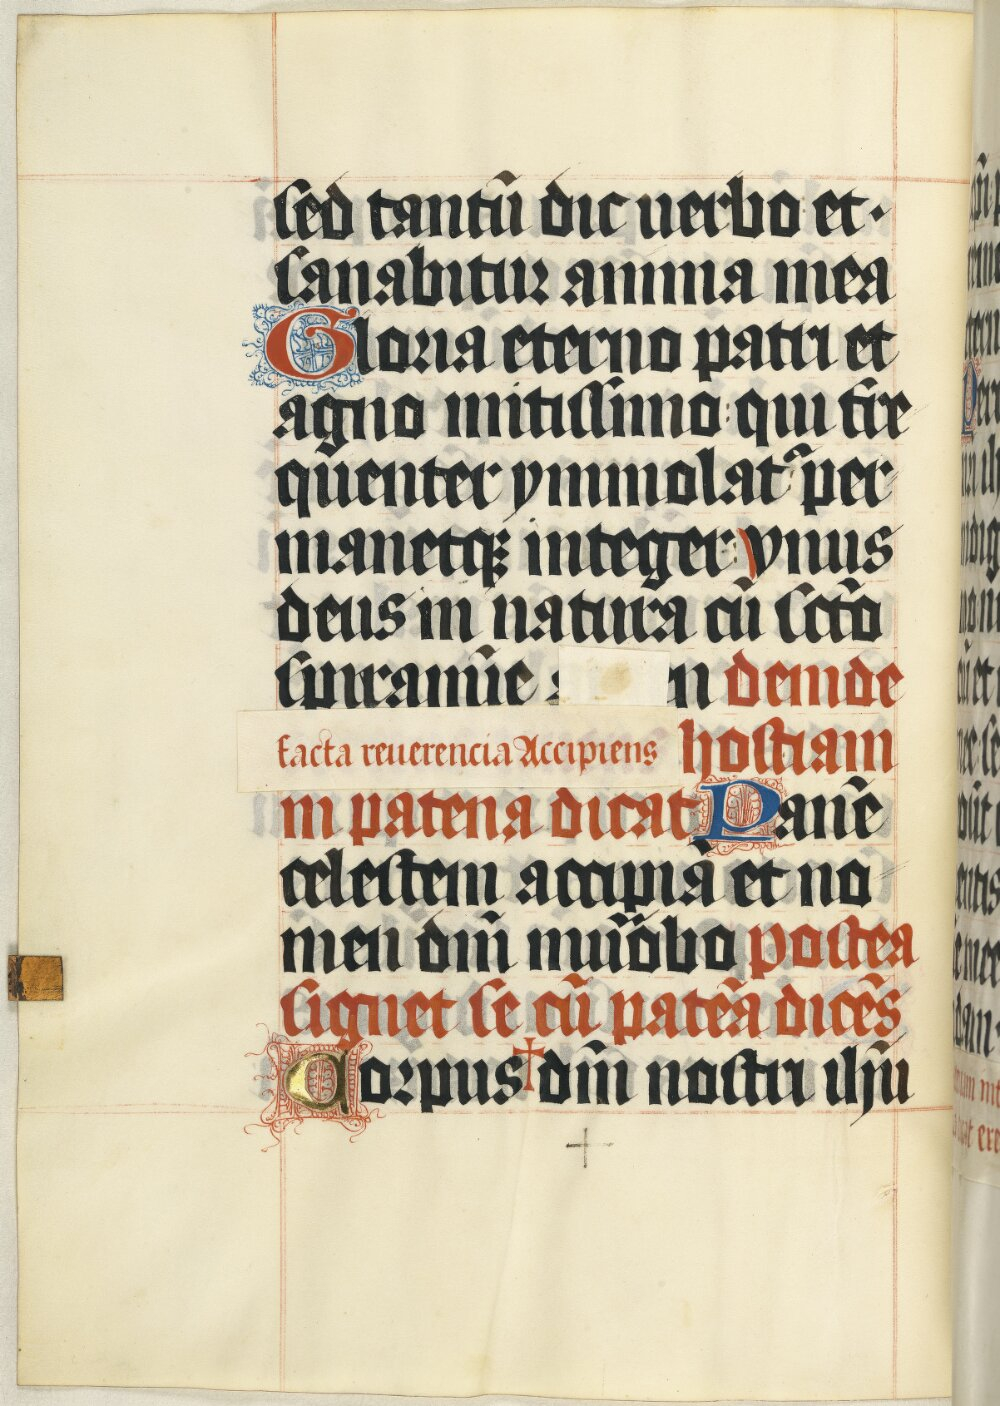 sed tantū dic uerbo et·
sanabitur anima mea
Gloria eterno patri et
agno mitissimo: qui fre
quenter ymmolatᷣ per
manetqꝫ integer: vnus
deus in natura cū sctō
spiramīe n deinde
facta reuerencia Accipiens hostiam
in patena dicat Panē
celestem accipiā et no
men dn̄i inuōbo postea
signet se cū patēa dicēs
Corpus † dn̄i nostri ihū